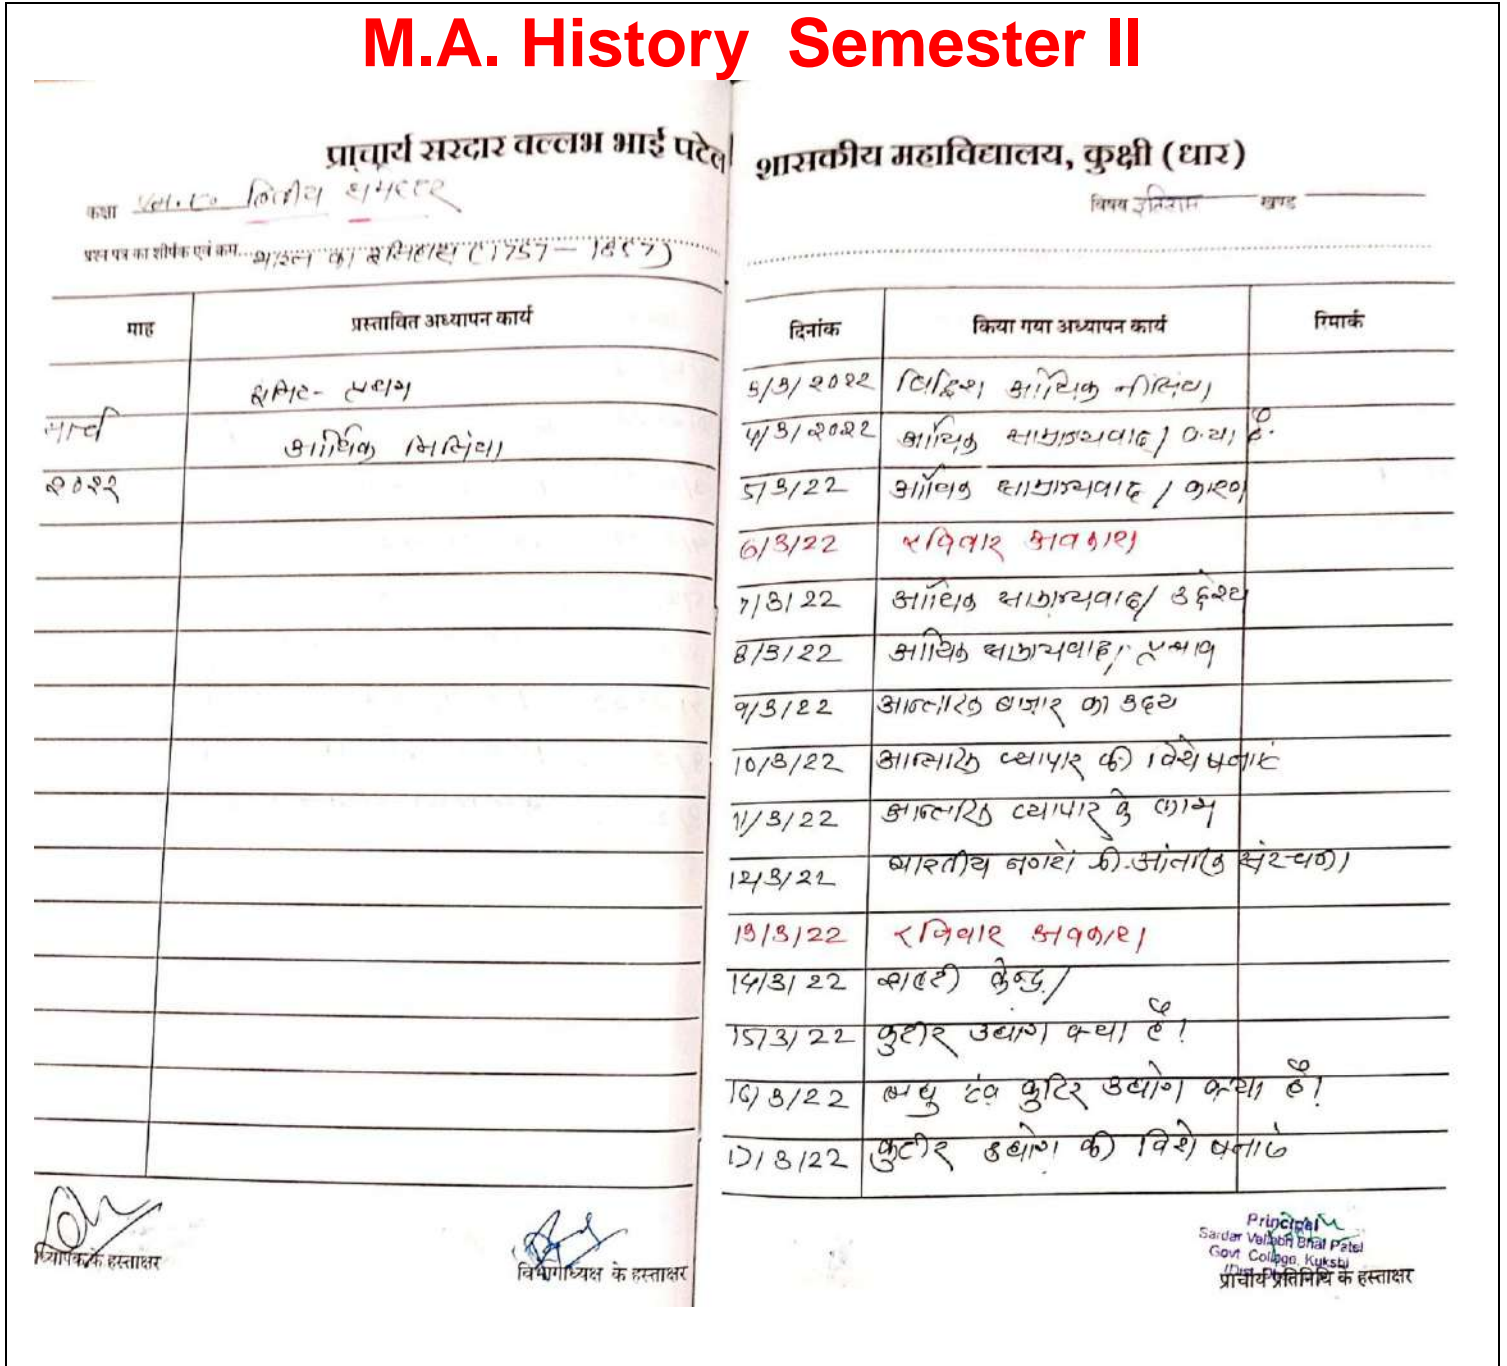 M.A. History Semester II
प्राचार्य सरदार वल्लभ भाई पटेल शासकीय महाविद्यालय, कुक्षी (धार)
कक्षा एम.ए. द्वितीय समेस्टर विषय इतिहास खण्ड
प्रश्न पत्र का शीर्षक एवं क्रम... भारत का इतिहास (1757 - 1857)
माह प्रस्तावित अध्यापन कार्य
मार्च आर्थिक
२०२२
दिनांक किया गया अध्यापन कार्य रिमार्क
3/3/२०२२ ब्रिटिश आर्थिक
4/3/२०२२ आर्थिक साम्राज्यवाद / क्या है.
5/3/22 आर्थिक साम्राज्यवाद / कारण
6/3/22 रविवार अवकाश
7/3/22 आर्थिक साम्राज्यवाद / उद्देश्य
8/3/22 आर्थिक साम्राज्यवाद / प्रभाव
9/3/22 आन्तरिक बाजार का उदय
10/3/22 आन्तरिक व्यापार की विशेषताएं
11/3/22 आन्तरिक व्यापार के लाभ
12/3/22 भारतीय नगरों की आंतरिक संरचना
13/3/22 रविवार अवकाश
14/3/22 शहरी केन्द्र /
15/3/22 कुटीर उद्योग क्या है!
16/3/22 लघु एंव कुटिर उद्योग क्या है!
17/3/22 कुटीर उद्योग की विशेषताएं
ध्यापक के हस्ताक्षर
विभागाध्यक्ष के हस्ताक्षर
Principal
Sardar Vallabh Bhai Patel
Govt College, Kukshi
प्राचार्य प्रतिनिधि के हस्ताक्षर